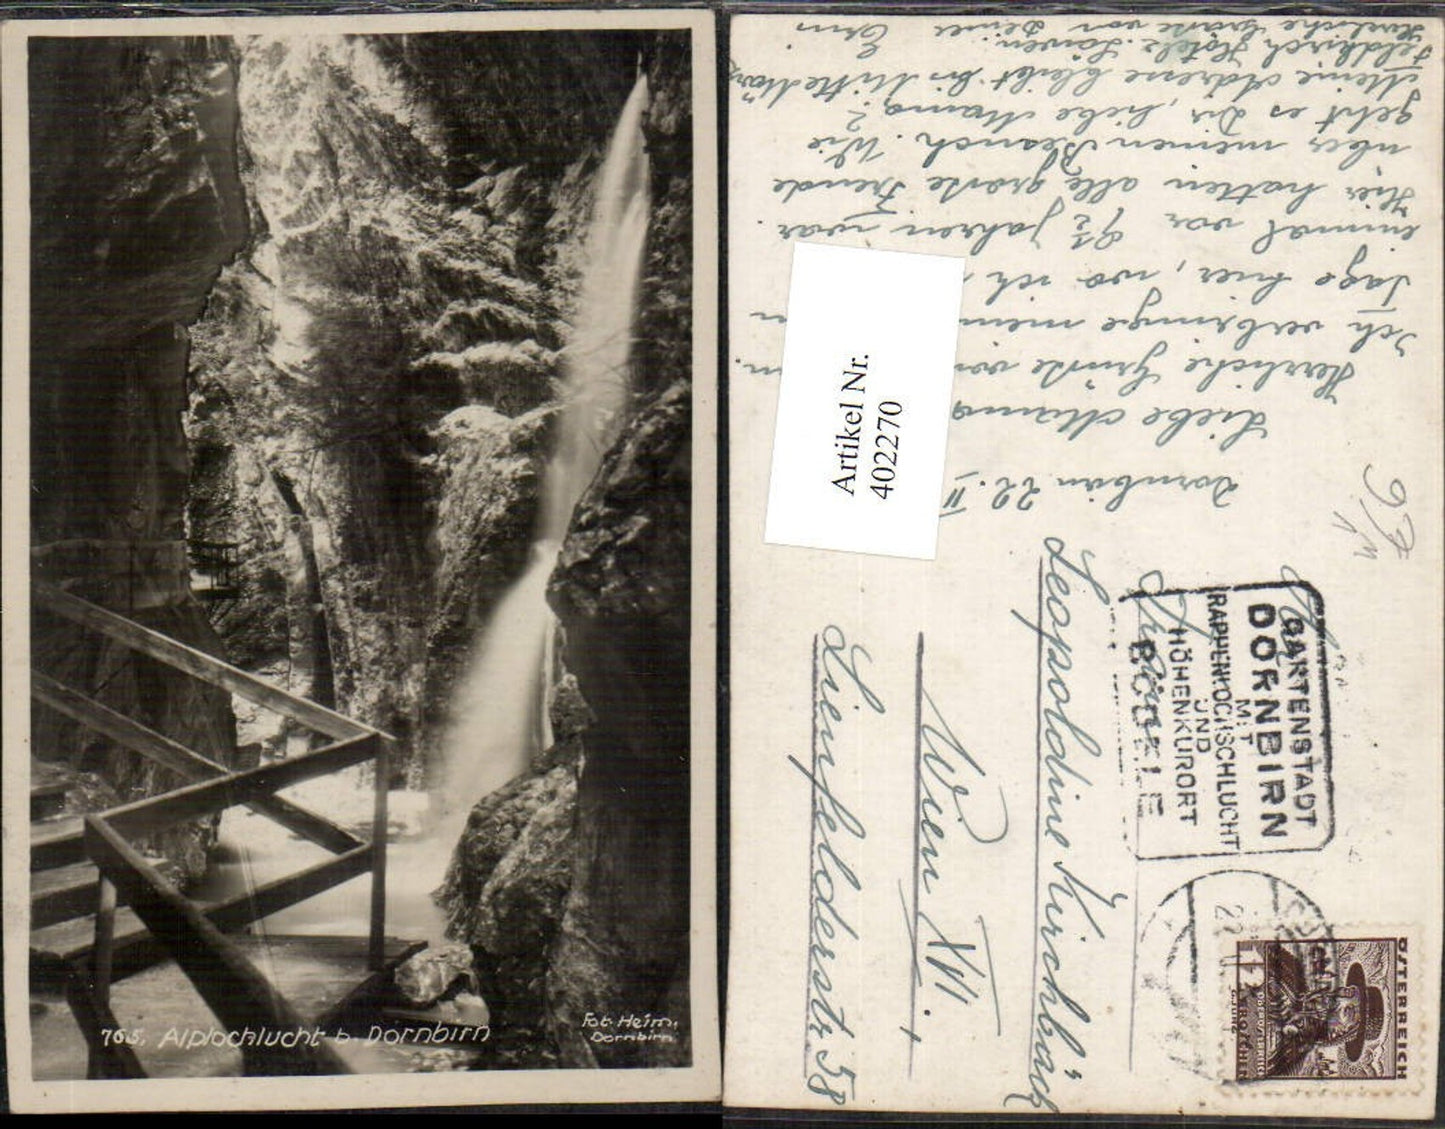 765. Alplochlucht b. Dornbirn
Fot. Heim,
Dornbirn
Artikel Nr.
402270
Dornbirn 22. II
Liebe Mama
Herzliche Grüsse von
Ich verbringe
Tage hier, wo ich
einmal vor 9½ Jahren war
Hier hatten alle grosse Freude
über meinen Besuch. Wie
geht es Dir, liebe Mama?
Meine Adresse bleibt bis
Feldkirch Hotel Löwen.
Herzliche Grüsse von Deiner
GARTENSTADT
DORNBIRN
MIT
RAPPENLOCHSCHLUCHT
UND
HÖHENKURORT
BÖDELE
Leopoldine Kirchbach
Wien XVI.,
Lienfelderstr. 58
ÖSTERREICH